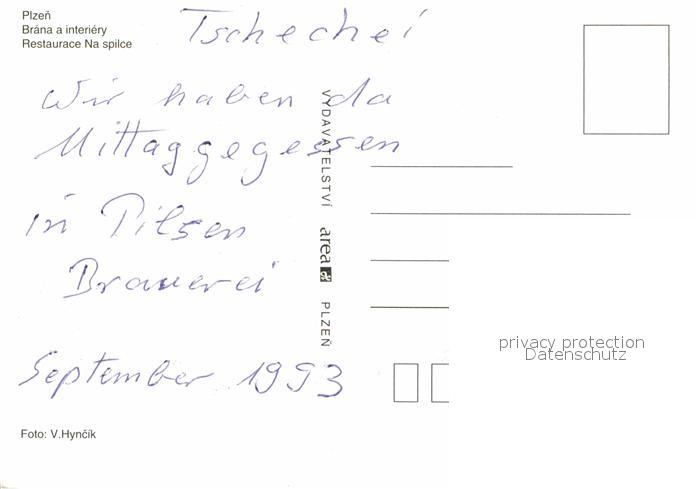 Plzeň
Brána a interiéry
Restaurace Na spilce
Tschechei
Wir haben da
Mittaggegessen
in Pilsen
Brauerei
September 1993
VYDAVATELSTVÍ area PLZEŇ
privacy protection
Datenschutz
Foto: V.Hynčík